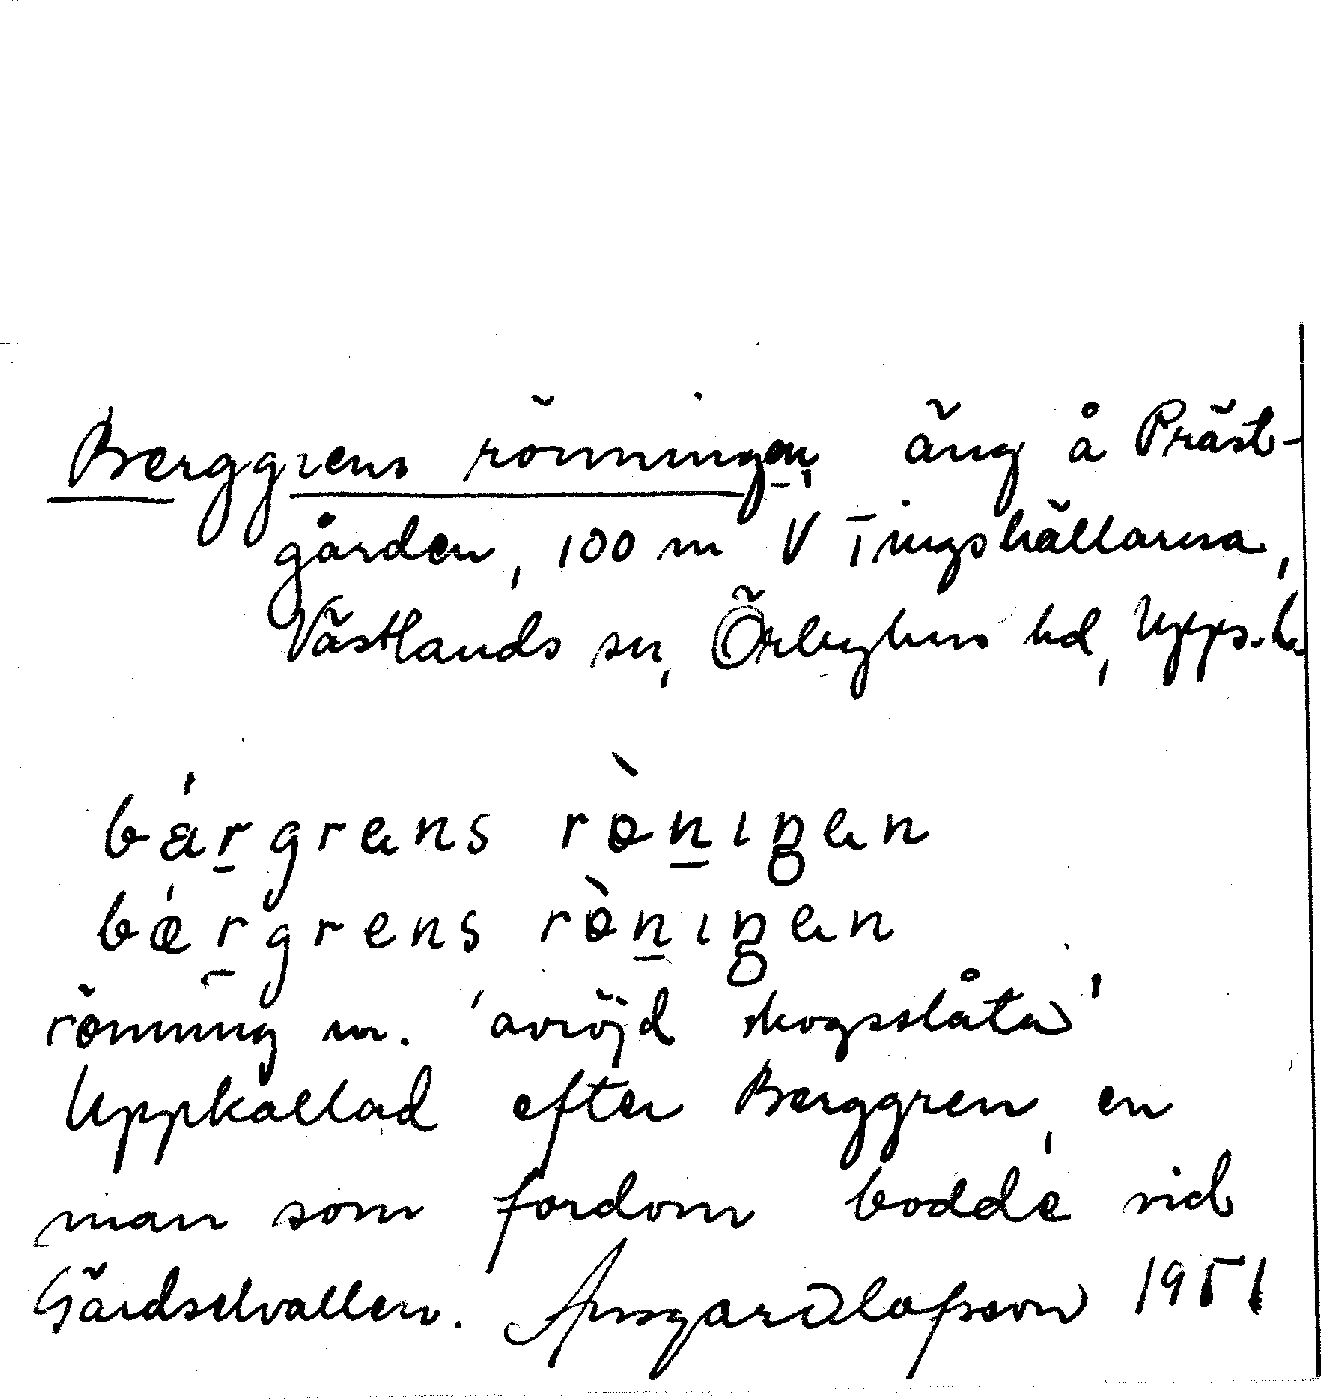 Berggrens rönningen, äng å Präst-
gården, 100 m V Tingshällarna,
Västlands sn, Örbyhus hd, Upps. l.
bárgrens rònıŋen
bǽrgrens rònıŋen
rönning m. 'avröjd skogsslåtta'
Uppkallad efter Berggren, en
man som fordom bodde vid
Gärdselvallen. Ansgar Olofsson 1951